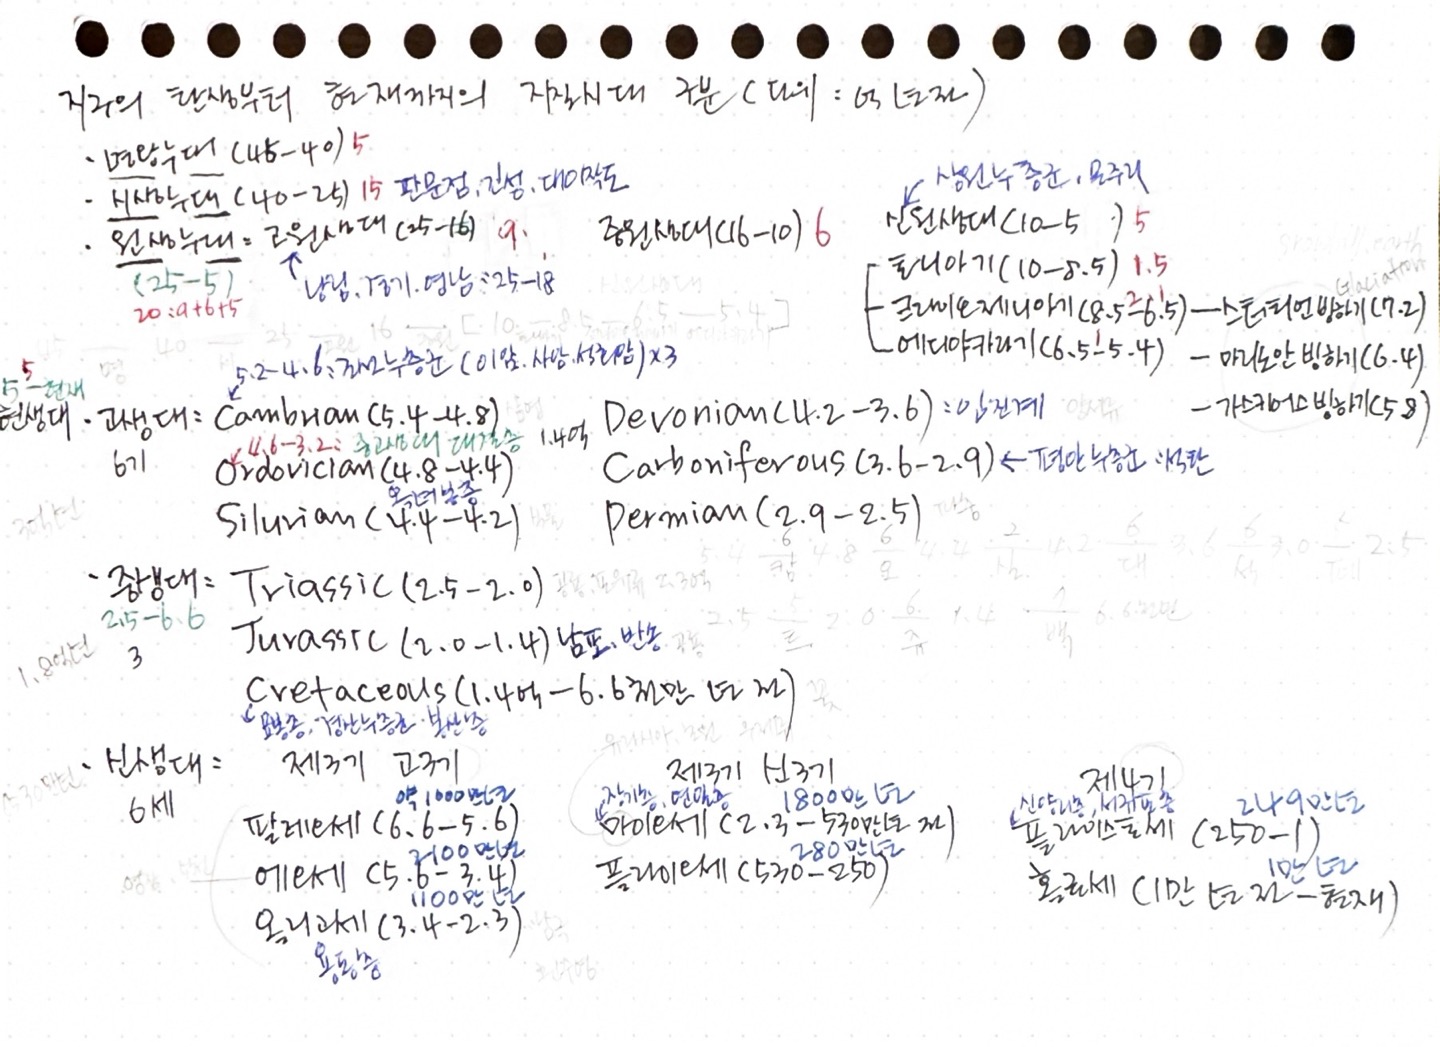 지구의 탄생부터 현재까지의 지질시대 구분 (단위 : 억 년 전)
· 명왕누대 (45-40) 5
· 시생누대 (40-25) 15 판문점, 진성, 대이작도
상원누층군, 모주리
· 원생누대 = 고원생대 (25-16) 9. 중원생대 (16-10) 6 신원생대 (10-5 ) 5
(25-5) 낭림, 경기, 영남 : 25-18
20 : 9+6+5
토니아기 (10-8.5) 1.5
크라이오제니아기 (8.5-6.5) 2 — 스터티언 빙하기 (7.2)
에디아카라기 (6.5-5.4) 1 - 마리노안 빙하기 (6.4)
- 가스키어스 빙하기 (5.8)
5-현재 5
현생대
5.2-4.6 : 조선누층군 (이암, 사암, 석회암) x3
· 고생대 = Cambrian (5.4-4.8) Devonian (4.2-3.6) : 임진계
6기 4.6-3.2 : 중고생대 대결층 1.4억
Ordovician (4.8-4.4) Carboniferous (3.6-2.9) ← 평안누층군 : 석탄
Silurian (4.4-4.2) Permian (2.9-2.5)
3억년
5.4 6 캄 4.8 6 오 4.4 2 실 4.2 6 데 3.6 6 석 3.0 2.5
· 중생대 = Triassic (2.5-2.0)
2.5-6.6
3
Jurassic (2.0-1.4) 남포, 반송
2.5 5 트 2.0 6 쥬 1.4 7 백 6.6천만
1.8억년
Cretaceous (1.4억-6.6천만 년 전)
묘봉층, 경상누층군, 불산층
· 신생대 = 제3기 고3기 제3기 신3기 제4기
6세
약 1000만년
팔레세 (6.6-5.6)
2100만년
에세 (5.6-3.4)
1100만년
올리고세 (3.4-2.3)
용동층
장기층, 연일층 1800만년
마이세 (2.3-530만년 전)
280만년
플라이세 (530-250)
신양리층, 서귀포층 249만년
플라이스토세 (250-1)
1만년
홀로세 (1만 년 전-현재)